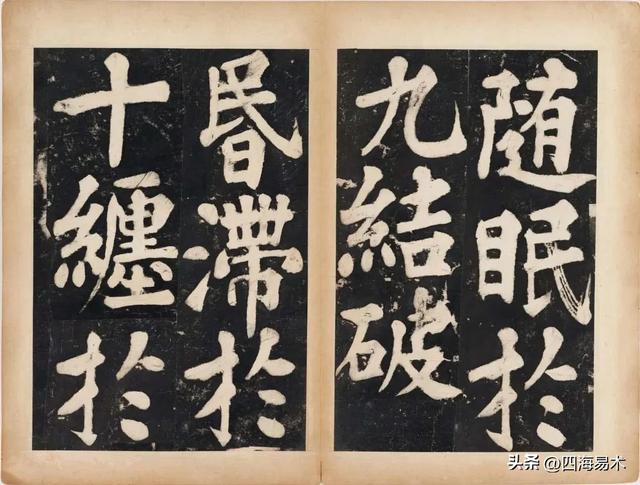 随眠於
九結破
昬滯於
十纏於
头条 @四海易木